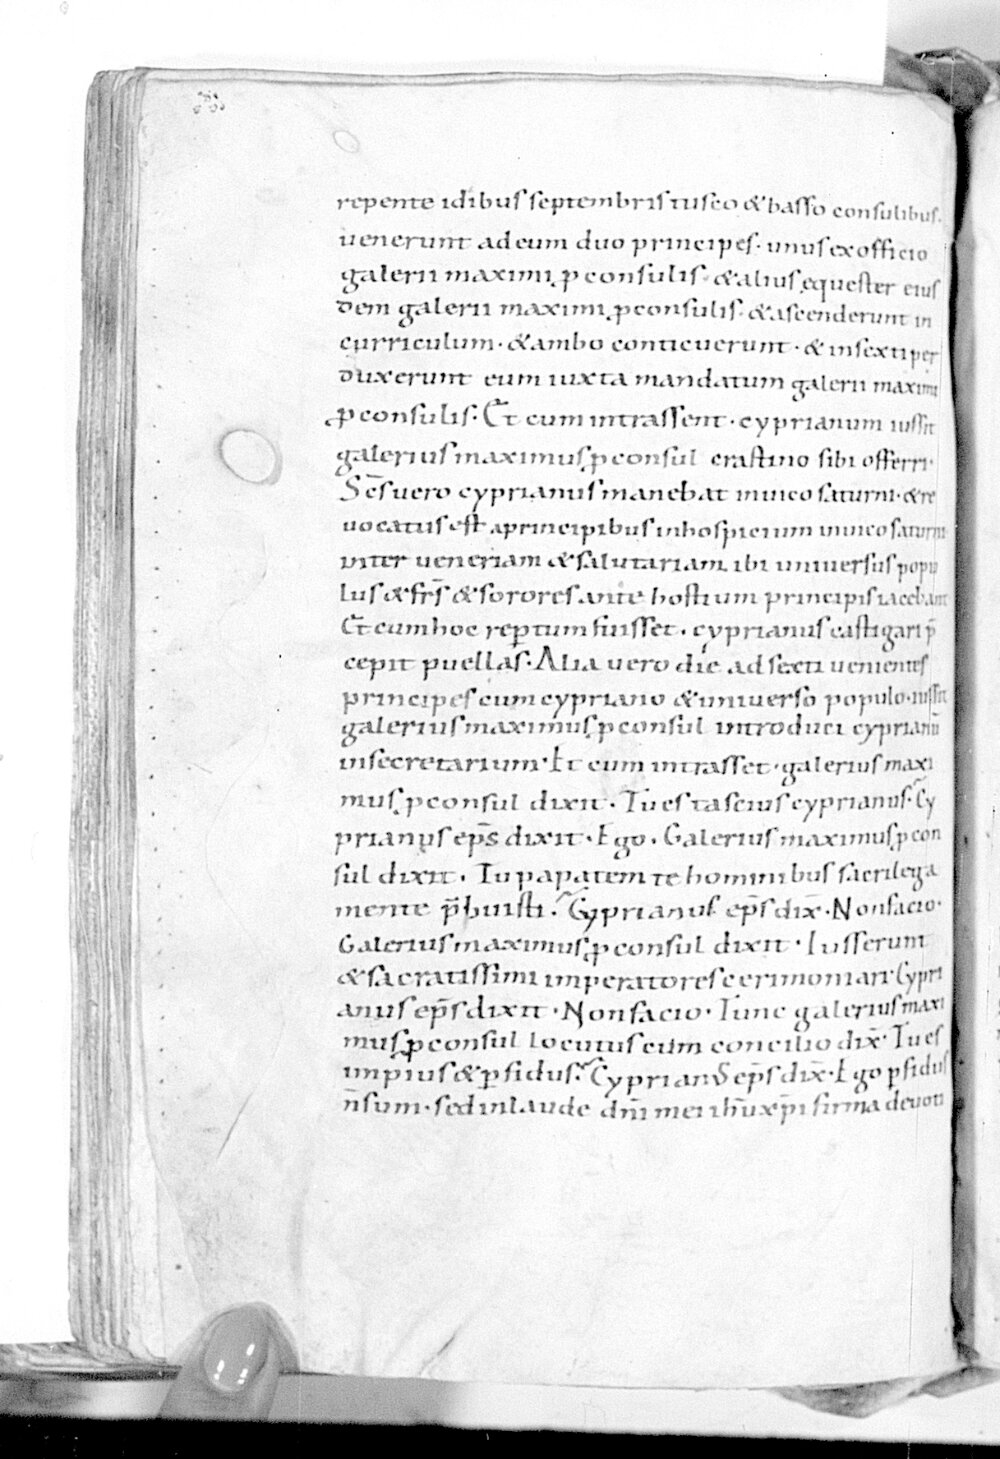 repente idibus septembris tusco & basso consulibus.
uenerunt ad eum duo principes · unus ex officio
galerii maximi ꝓconsulis · & alius equester eius
dem galerii maximi ꝓconsulis · & ascenderunt in
curriculum · & ambo conticuerunt · & in sexti per
duxerunt eum iuxta mandatum galerii maximi
ꝓconsulis · Et cum intrassent · cyprianum iussit
galerius maximus ꝓconsul crastino sibi offerri ·
Sc̄s uero cyprianus manebat in uico saturni · & re
uocatus est a principibus in hospicium in uico saturni
inter ueneriam & salutariam ibi uniuersus popu
lus & fr̄s & sorores ante hostium principis iacebant
Et cum hoc reꝑtum fuisset · cyprianus castigari p̄
cepit puellas · Alia uero die ad sexti uenientes
principes cum cypriano & uniuerso populo · iussit
galerius maximus ꝓconsul introduci cyprianū
in secretarium · Et cum intrasset · galerius maxi
mus ꝓconsul dixit · Tu es tascius cyprianus · Cy
prianus ep̄s dixit · Ego · Galerius maximus ꝓcon
sul dixit · Tu papatem te hominibus sacrilega
mente p̄buisti · Cyprianus ep̄s dix̄ · Non facio ·
Galerius maximus ꝓconsul dixit · Iusserunt
& sacratissimi imperatores cerimoniari · Cypri
anus ep̄s dixit · Non facio · Tunc galerius maxi
mus ꝓconsul locutus cum concilio dix̄ · Tu es
impius & ꝑfidus · Cyprianus ep̄s dix̄ · Ego ꝑfidus
n̄ sum · sed in laude dn̄i mei ih̄u xp̄i firma deuoti